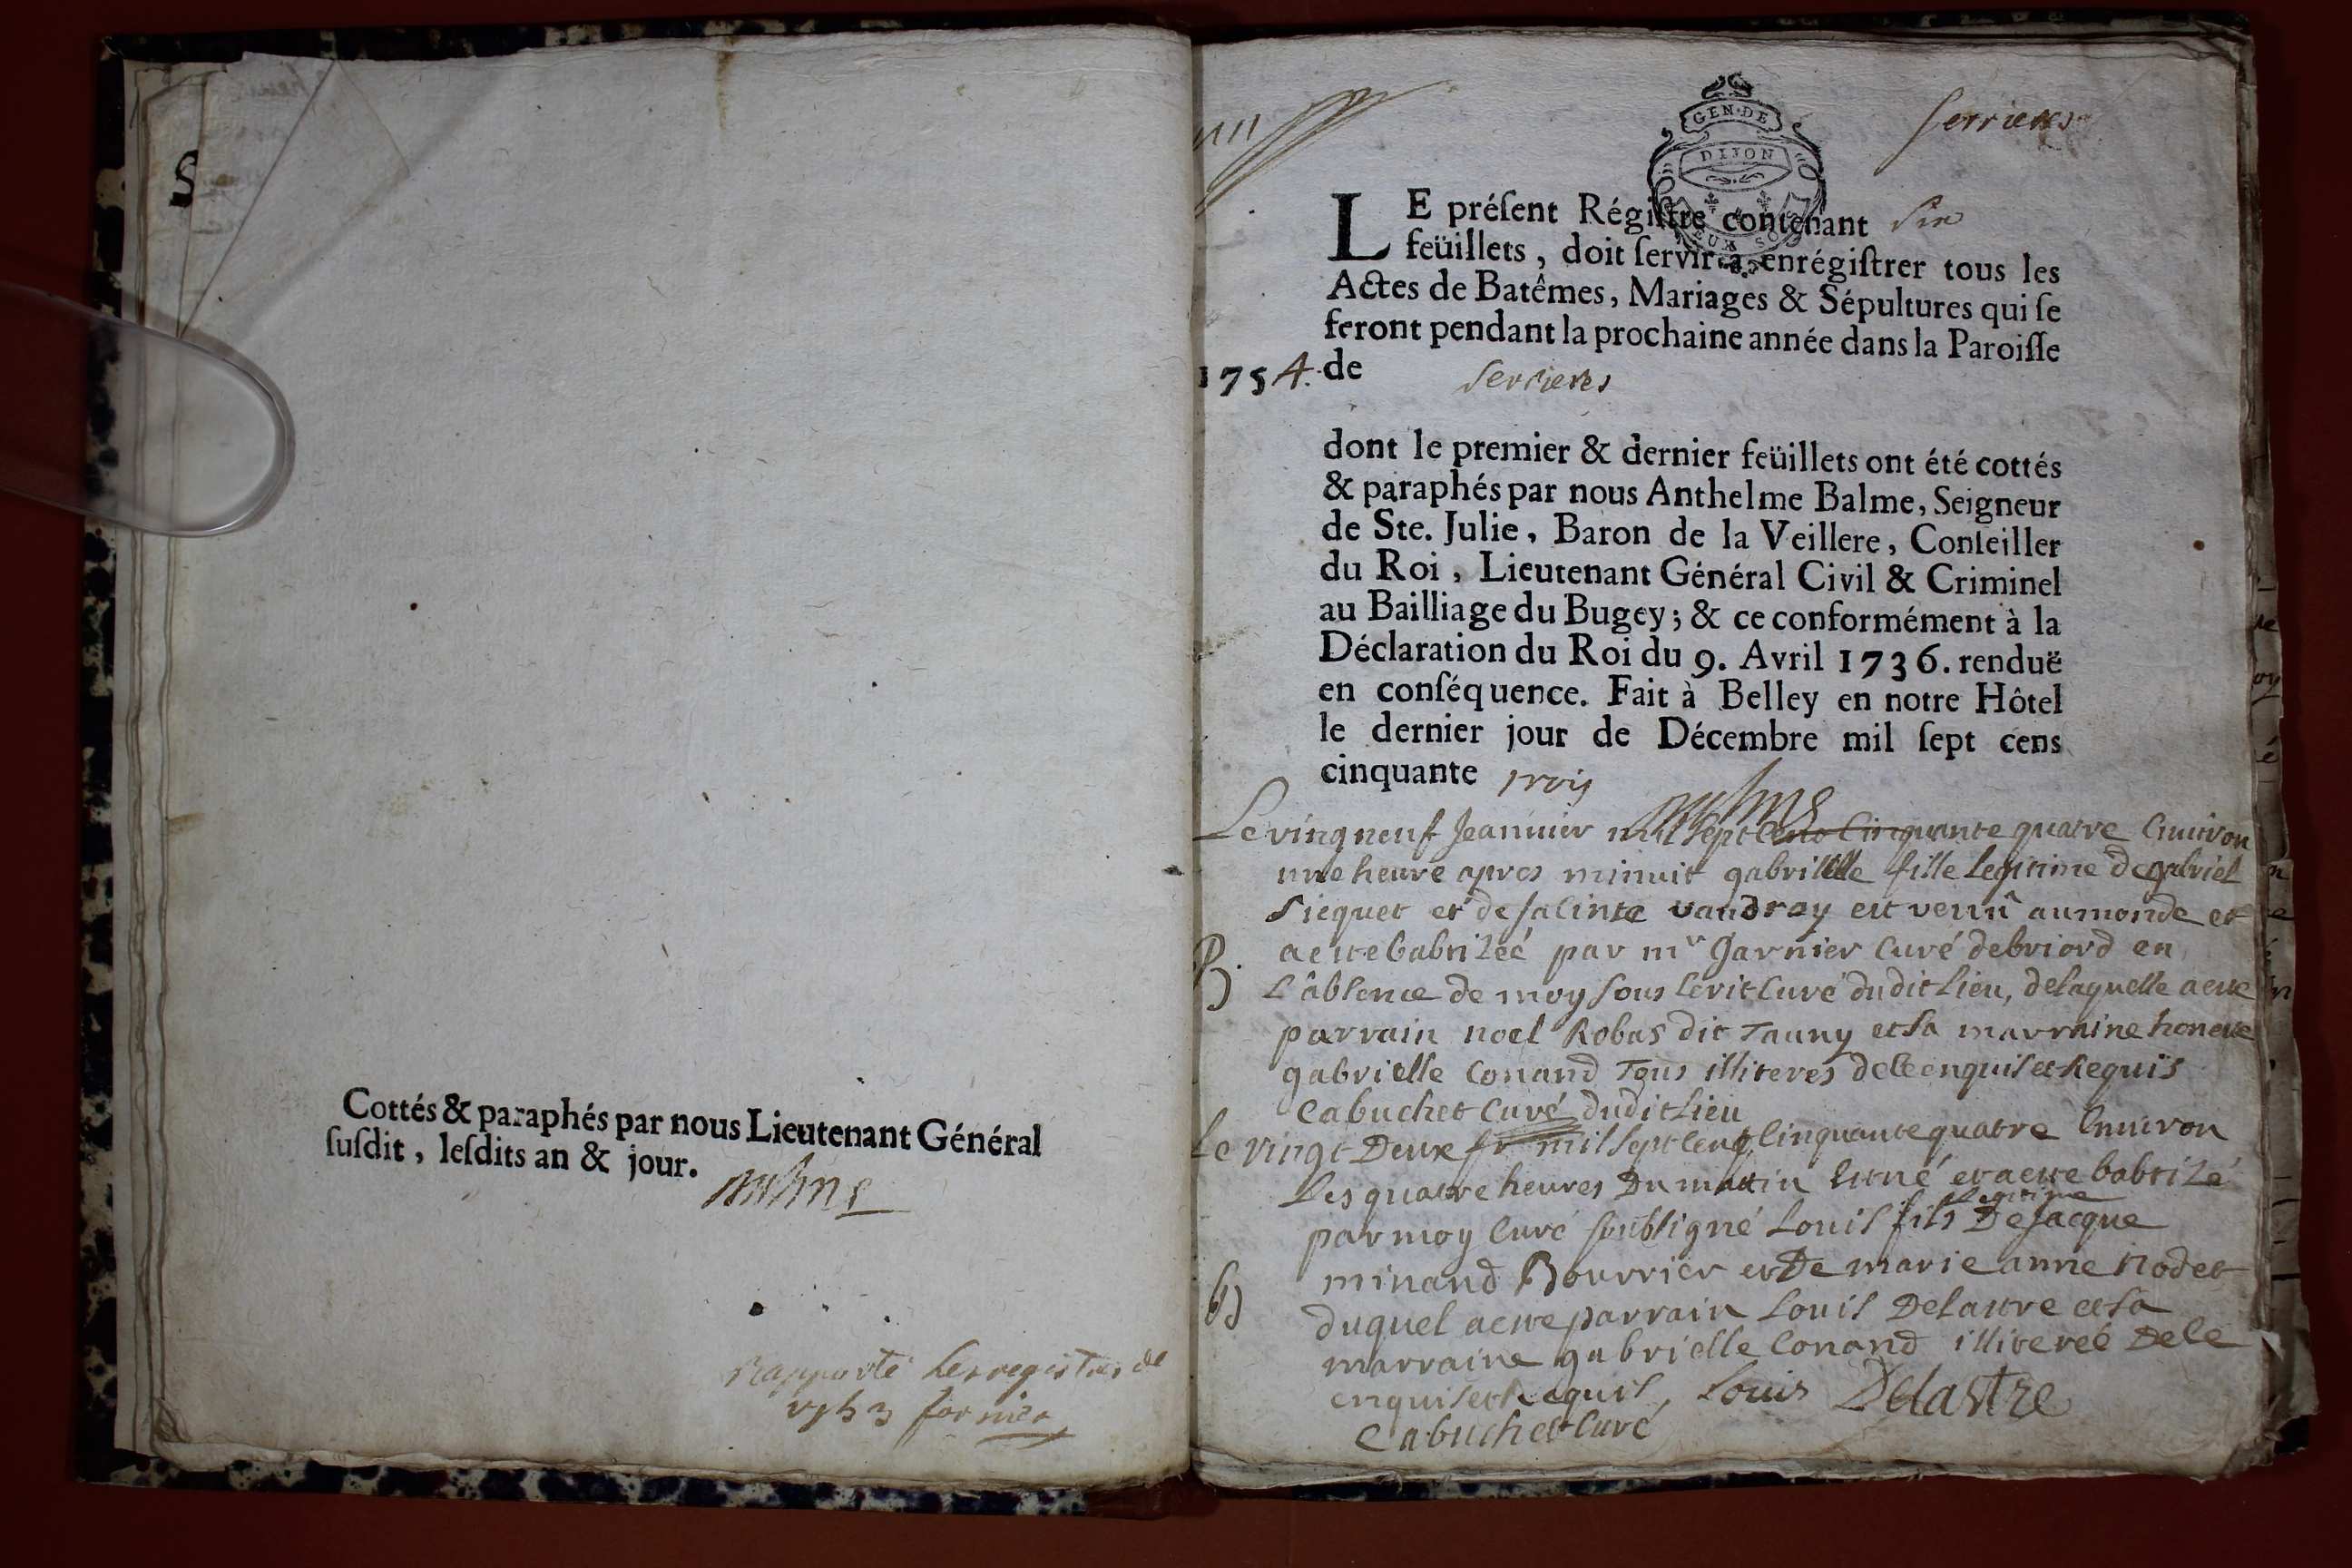 Cottés & paraphés par nous Lieutenant Général
ſuſdit, leſdits an & jour.
Rapporté les registres de
GEN·DE
DIJON
DEUX SOLS
serrieres
LE préſent Régiſtre contenant Six
feüillets, doit ſervir à enrégiſtrer tous les
Actes de Batêmes, Mariages & Sépultures qui ſe
feront pendant la prochaine année dans la Paroiſſe
1754. de serrieres
dont le premier & dernier feüillets ont été cottés
& paraphés par nous Anthelme Balme, Seigneur
de Ste. Julie, Baron de la Veillere, Conſeiller
du Roi, Lieutenant Général Civil & Criminel
au Bailliage du Bugey; & ce conformément à la
Déclaration du Roi du 9. Avril 1736. renduë
en conſéquence. Fait à Belley en notre Hôtel
le dernier jour de Décembre mil ſept cens
cinquante trois
Le vingneuf Jeanuier mil sept cens Cinquante quatre Enuiron
une heure apres minuit gabrielle fille legitime de gabriel
et de vaudray est venu au monde et
a este babtizeé par mr Garnier Curé de briord en
B. L'âbsence de moy sous Ecrit Curé dudit Lieu, de laquelle a este
parrain noel Robas dit Tauny et sa marraine honeste
gabrielle Conand Tous illiteres de ce enquis et Requis
Cabuchet Curé dudit Lieu
Le vingt Deux fr mil sept cent Cinquante quatre Enuiron
Les quatre heures Du matin Est né et a este babtizé
par moy Curé soubsigné Louis fils legitime De Jacque
minand Bourrier et De marie anne nodet
B duquel a este parrain Louis Delastre et sa
marraine gabrielle Conand illitereé De ce
enquis et Requis, Louis Delastre
Cabuchet Curé